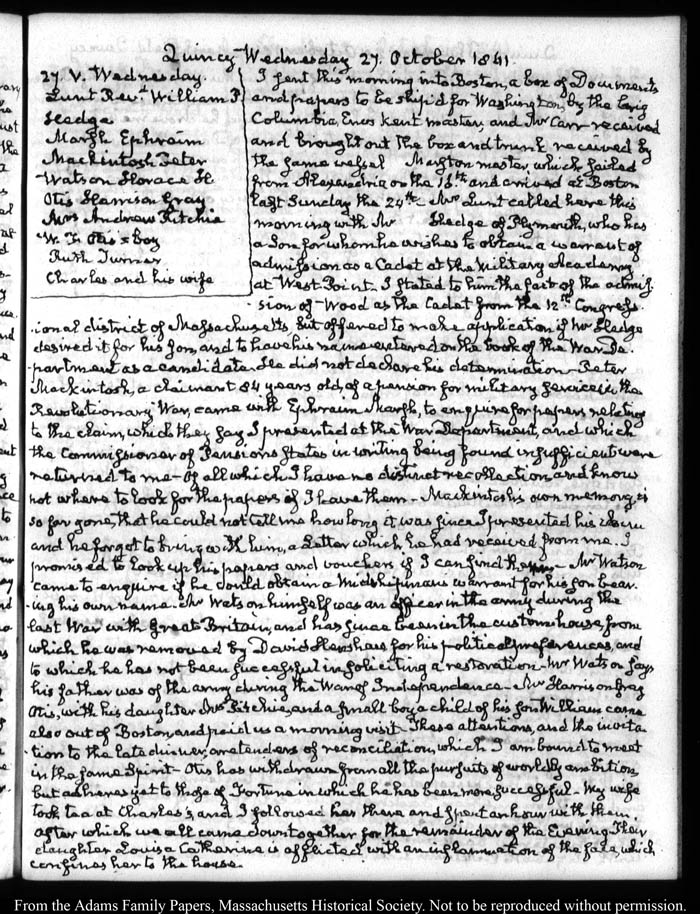 Quincy Wednesday 27. October 1841.
27. V. Wednesday.
Lunt Revd. William P.
Hedge
Marsh Ephraim
Mackintosh Peter
Watson Horace H
Otis Harrison Gray
Mrs Andrew Ritchie
W. F. Otis's boy
Ruth Turner
Charles and his wife
I sent this morning into Boston, a box of Documents
and papers to be ship'd for Washington, by the brig
Columbia, Enos Kent master, and Mr Carr received
and brought out the box and trunk received by
the same vessel Marston master, which sailed
from Alexandria on the 16th. and arrived at Boston
last Sunday the 24th. Mr Lunt called here this
morning with Mr Hedge of Plymouth, who has
a Son for whom he wishes to obtain a warrant of
admission as a Cadet at the Military Academy
at West-Point. I stated to him the fact of the admis-
sion of Wood as the Cadet from the 12th Congress-
ional district of Massachusetts, but offered to make application, if Mr Hedge
desired it for his Son, and to have his name entered on the book of the War De-
partment as a candidate. He did not declare his determination. Peter
Mackintosh, a claimant 84 years old, of a pension for military service in the
Revolutionary War, came with Ephraim Marsh, to enquire for papers relating
to the claim, which they say, I presented at the War Department, and which
the Commissioner of Pensions states in writing being found insufficient were
returned to me—of all which I have no distinct recollection and know
not where to look for the papers if I have them. Mackintosh's own memory is
so far gone, that he could not tell me how long it was since I presented his claim
and he forgot to bring with him, a Letter which he had received from me. I
promised to look up his papers and vouchers if I can find them. Mr Watson
came to enquire if he could obtain a Midshipman's warrant for his son bear-
ing his own name. Mr Watson himself was an officer in the army during the
last War with Great Britain, and has since been in the custom house, from
which he was removed by David Henshaw for his political preferences, and
to which he has not been successful in soliciting a restoration. Mr Watson says
his father was of the army during the War of Independence. Mr Harrison Gray
Otis, with his daughter Mrs Ritchie, and a small boy a child of his son William came
also out of Boston, and paid us a morning visit. These attentions, and the invita-
tion to the late dinner, are tenders of reconciliation, which I am bound to meet
in the same Spirit. Otis has withdrawn from all the pursuits of worldly ambition
but adheres yet to those of Fortune in which he has been more successful. My wife
took tea at Charles's, and I followed her there and spent an hour with them.
after which we all came down together for the remainder of the Evening. Their
daughter Louisa Catherine is afflicted with an inflammation of the face, which
confines her to the house.
From the Adams Family Papers, Massachusetts Historical Society. Not to be reproduced without permission.